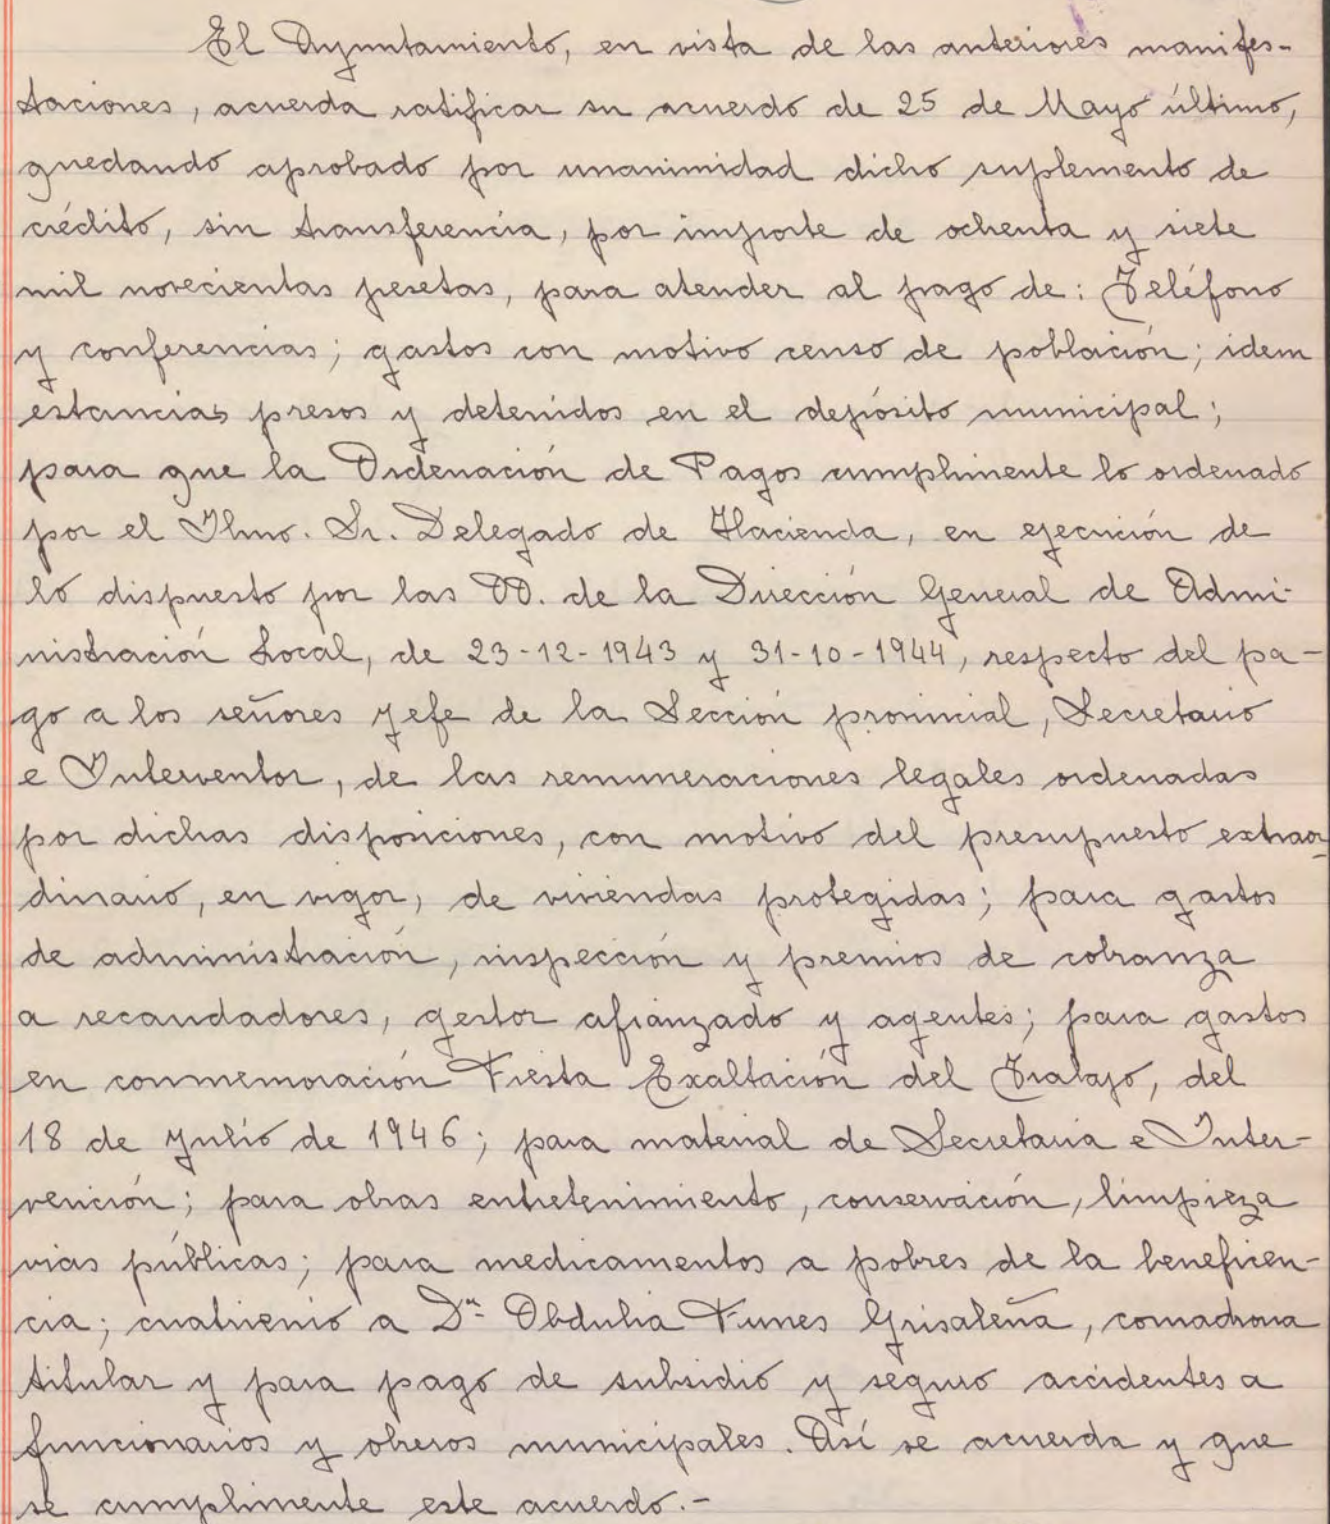 El Ayuntamiento, en vista de las anteriores manifes-
taciones, acuerda ratificar su acuerdo de 25 de Mayo último,
quedando aprobado por unanimidad dicho suplemento de
crédito, sin transferencia, por importe de ochenta y siete
mil novecientas pesetas, para atender al pago de: Teléfono
y conferencias; gastos con motivo censo de población; idem
estancias presos y detenidos en el depósito municipal;
para que la Ordenación de Pagos cumplimente lo ordenado
por el Ilmo. Sr. Delegado de Hacienda, en ejecución de
lo dispuesto por las OO. de la Dirección General de Admi-
nistración Local, de 23-12-1943 y 31-10-1944, respecto del pa-
go a los señores Jefe de la Sección provincial, Secretario
e Interventor, de las remuneraciones legales ordenadas
por dichas disposiciones, con motivo del presupuesto extraor-
dinario, en vigor, de viviendas protegidas; para gastos
de administración, inspección y premios de cobranza
a recaudadores, gestor afianzado y agentes; para gastos
en conmemoración Fiesta Exaltación del Trabajo, del
18 de Julio de 1946; para material de Secretaria e Inter-
vención; para obras entretenimiento, conservación, limpieza
vias públicas; para medicamentos a pobres de la beneficen-
cia; cuatrienio a Dª Obdulia Funes Grisaleña, comadrona
titular y para pago de subsidio y seguro accidentes a
funcionarios y obreros municipales. Así se acuerda y que
se cumplimente este acuerdo.-